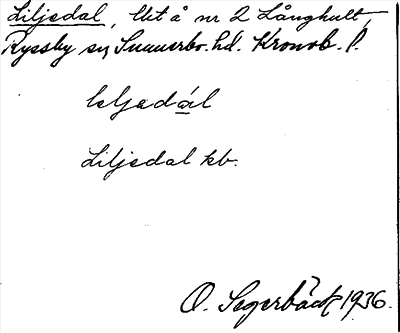 Liljedal, lht å nr 2 Långhult,
Ryssby sn Sunnerbo hd. Kronob. l.
lıljedál
Liljedal kb.
O. Segerbäck 1936.